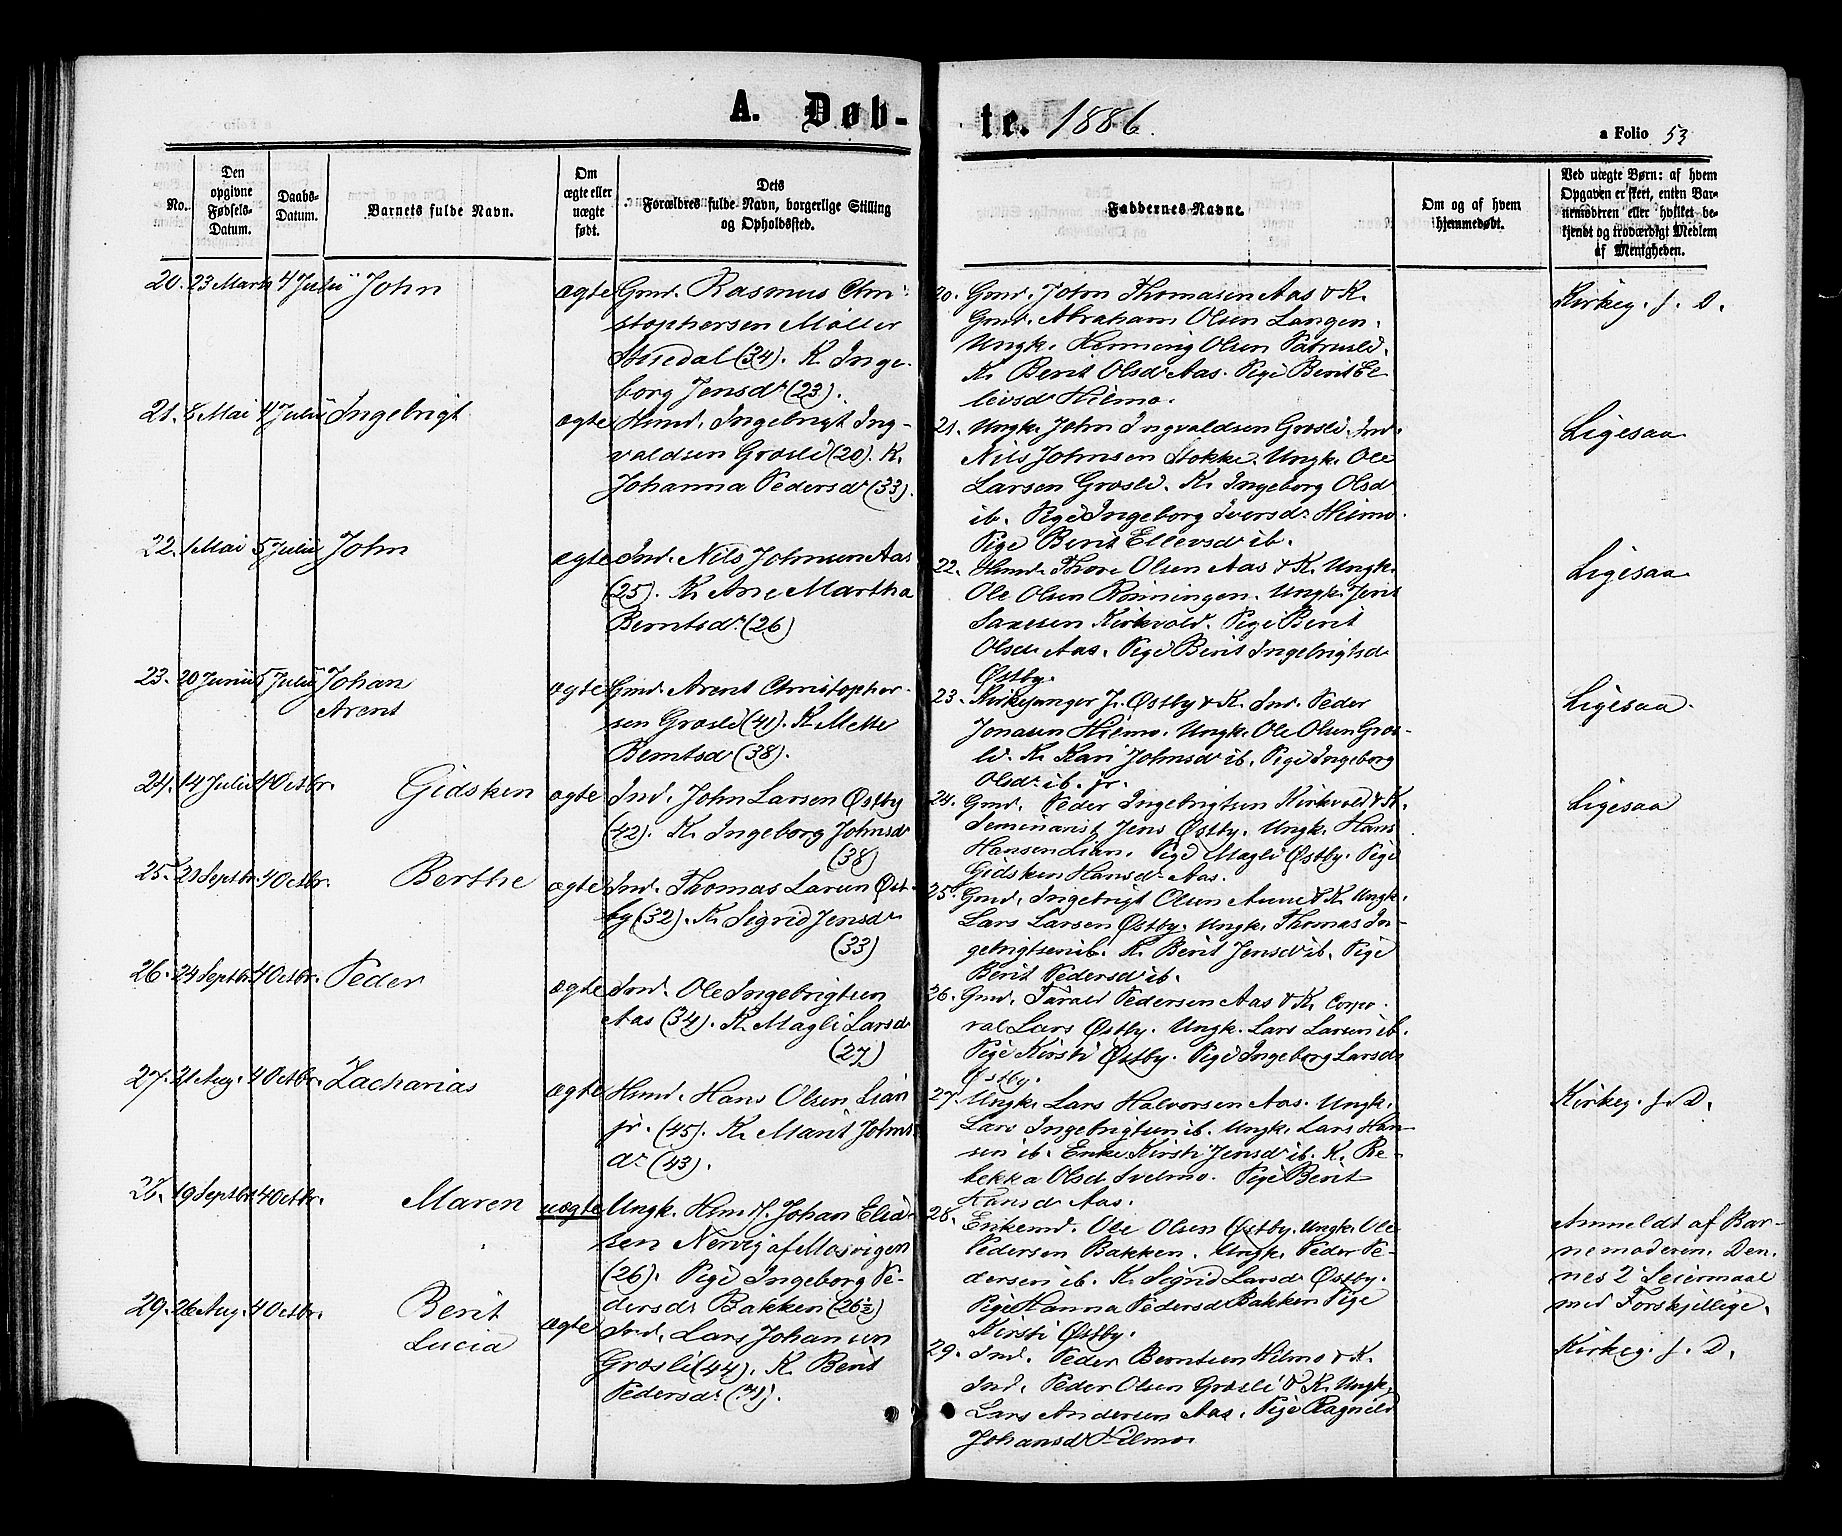 A. Døb-
te. 1886.
a Folio 53
No.
Den opgivne Fødsels-Datum.
Daabs-Datum.
Barnets fulde Navn.
Om ægte eller uægte født.
Dets
Forældres fulde Navn, borgerlige Stilling
og Opholdssted.
Faddernes Navne.
Om og af hvem
hjemmedøbt.
Ved uægte Børn: af hvem
Opgaven er skeet, enten Bar-
nemoderen eller hvilket be-
kjendt og troværdigt Medlem
af Menigheden.
20. 23 Marts 4 Julii John ægte Gmd. Rasmus Chri-
stophersen Møller
(34). K. Inge-
borg Jensdr (23).
21. 8 Mai 4 Julii Ingebrigt ægte Hmd. Ingebrigt Ing-
valdsen Græsli (20). K.
Johanna Pedersdr (33).
22. 1 Mai 5 Julii John ægte Ind. Nils Johnsen Aas
(25). K. Ane Martha
Berntsdr. (26)
23. 20 Junii 5 Julii Johan ægte Gmd. Arent Christopher-
Arent sen Græsli (41). K. Mette
Berntsd (38).
24. 14 Julii 4 Octbr. Gidsken ægte Ind. John Larsen Østby
(42). K. Ingeborg Johnsdr
(38)
25. 21 Septbr. 4 Octbr. Berthe ægte Ind. Thomas Larsen Øst-
by (32). K. Sigrid Jensdr
(33)
26. 24 Septbr. 4 Octbr. Peder ægte Ind. Ole Ingebrigtsen
Aas (34). K. Magli Larsdr
(27)
27. 21 Aug. 4 Octbr. Zacharias ægte Hmd. Hans Olsen Lian
jr. (45). K. Marit Johns-
dr (43).
28. 19 Septbr. 4 Octbr. Maren uægte Ungk. Johan Elia-
sen Nervig af Mosvigen
(26). Pige Ingeborg Pe-
dersdr Bakken (26½)
29. 26 Aug. 4 Octbr. Berit ægte Ind. Lars Johansen
Lucia Græsli (44). K. Berit
Pedersdr. (41).
20. Gmd. John Thomasen Aas & K.
Gmd. Abraham Olsen Langen.
Ungk. Henning Olsen
K. Berit Olsdr Aas. Pige Berit El-
levsd Hilmo.
Kirkeg. f. D.
21. Ungk. John Ingvaldsen Græsli. Ind.
Nils Johnsen Stokke. Ungk. Ole
Larsen Græsli. K. Ingeborg Olsd
ib. Pige Ingeborg Iversdr Hilmo.
Pige Berit Ellevsdr ib.
Ligesaa
22. Hmd. Thore Olsen Aas & K. Ungk.
Ole Olsen Rønningen. Ungk. Jens
Kirkvold. Pige Berit
Olsdr Aas. Pige Berit Ingebrigtsd
Østby.
Ligesaa
23. Kirkesanger J. Østby & K. Ind. Peder
Jonasen Hilmo. Ungk. Ole Olsen Græs-
li. K. Kari Johnsdr ib. Pige Ingeborg
Olsdr ib. jr.
Ligesaa
24. Gmd. Peder Ingebrigtsen Kirkvold & K.
Seminarist Jens Østby. Ungk. Hans
Hansen Lian. Pige Magli Østby. Pige
Gidsken Hansdr Aas.
Ligesaa
25. Gmd. Ingebrigt Olsen Aune & K. Ungk.
Lars Larsen Østby. Ungk. Thomas In-
gebrigtsen ib. K. Berit Jensd ib. Pige
Berit Pedersdr ib.
26. Gmd. Tarald Pedersen Aas & K. Corpo-
ral Lars Østby. Ungk. Lars Larsen ib.
Pige Kirsti Østby. Pige Ingeborg Larsdr
Østby.
27. Ungk. Lars Halvorsen Aas. Ungk.
Lars Ingebrigtsen ib. Ungk. Lars Han-
sen ib. Enke Kirsti Jensdr ib. K. Re-
bekka Olsd Svelmo. Pige Berit
Hansdr Aas.
Kirkeg. f. D.
28. Enkemd. Ole Olsen Østby. Ungk. Ole
Pedersen Bakken. Ungk. Peder Pe-
dersen ib. K. Sigrid Larsdr Østby.
Pige Hanna Pedersdr Bakken. Pige
Kirsti Østby.
Anmeldt af Bar-
nemoderen. Den-
nes 2det Leiermaal
med Forskjellige.
29. Ind. Peder Berntsen Hilmo & K.
Ind. Peder Olsen Græsli & K. Ungk.
Lars Andersen Aas. Pige Ragnild
Johansdr Hilmo.
Kirkeg. f. D.